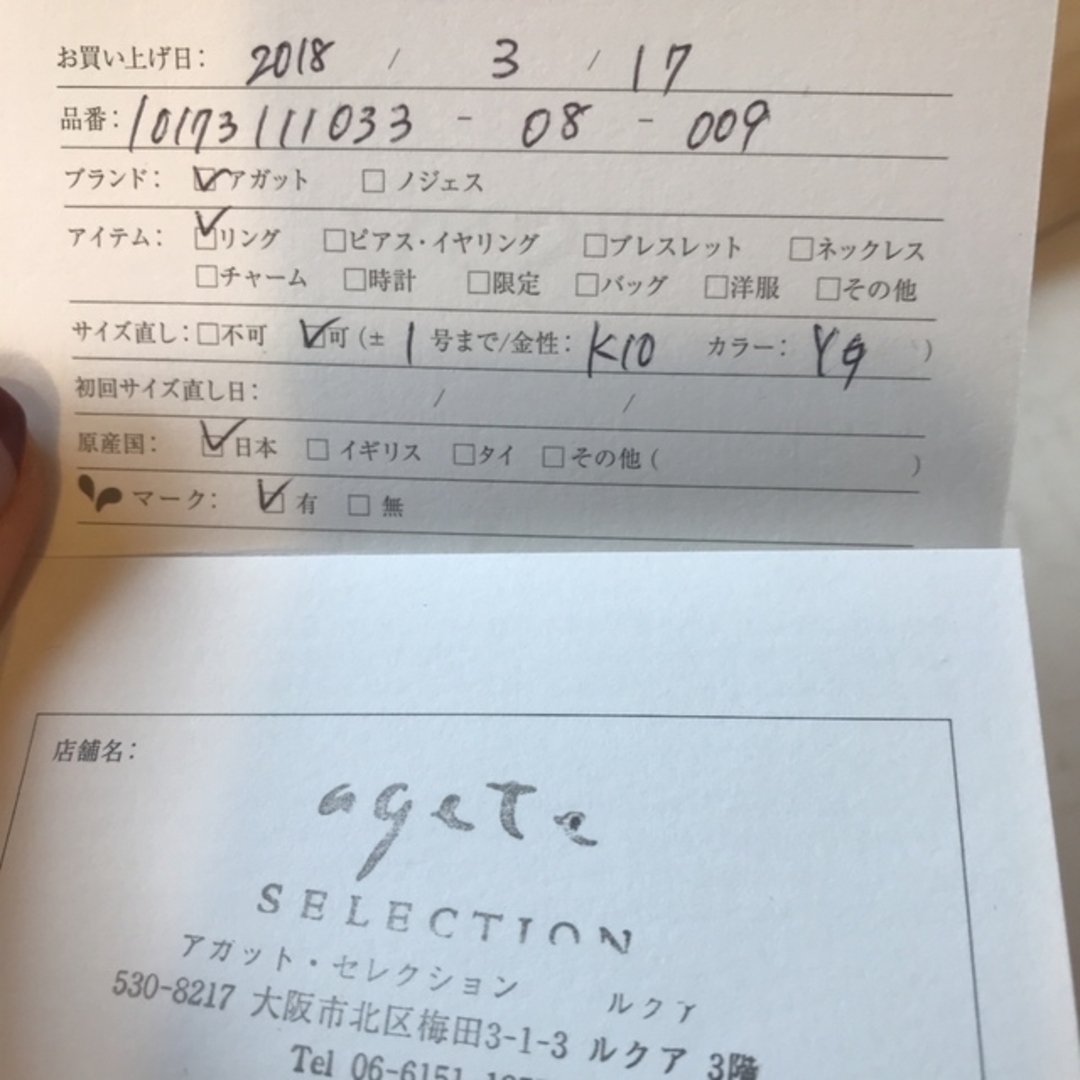 お買い上げ日: 2018 / 3 / 17
品番: 10173111033 - 08 - 009
ブランド: ☑アガット □ノジェス
アイテム: ☑リング □ピアス・イヤリング □ブレスレット □ネックレス
□チャーム □時計 □限定 □バッグ □洋服 □その他
サイズ直し: □不可 ☑可 (± 1 号まで/金性: K10 カラー: YG )
初回サイズ直し日: / /
原産国: ☑日本 □イギリス □タイ □その他 ( )
マーク: ☑有 □無
店舗名:
agete
SELECTION
アガット・セレクション ルクア
530-8217 大阪市北区梅田3-1-3 ルクア 3階
Tel 06-6151